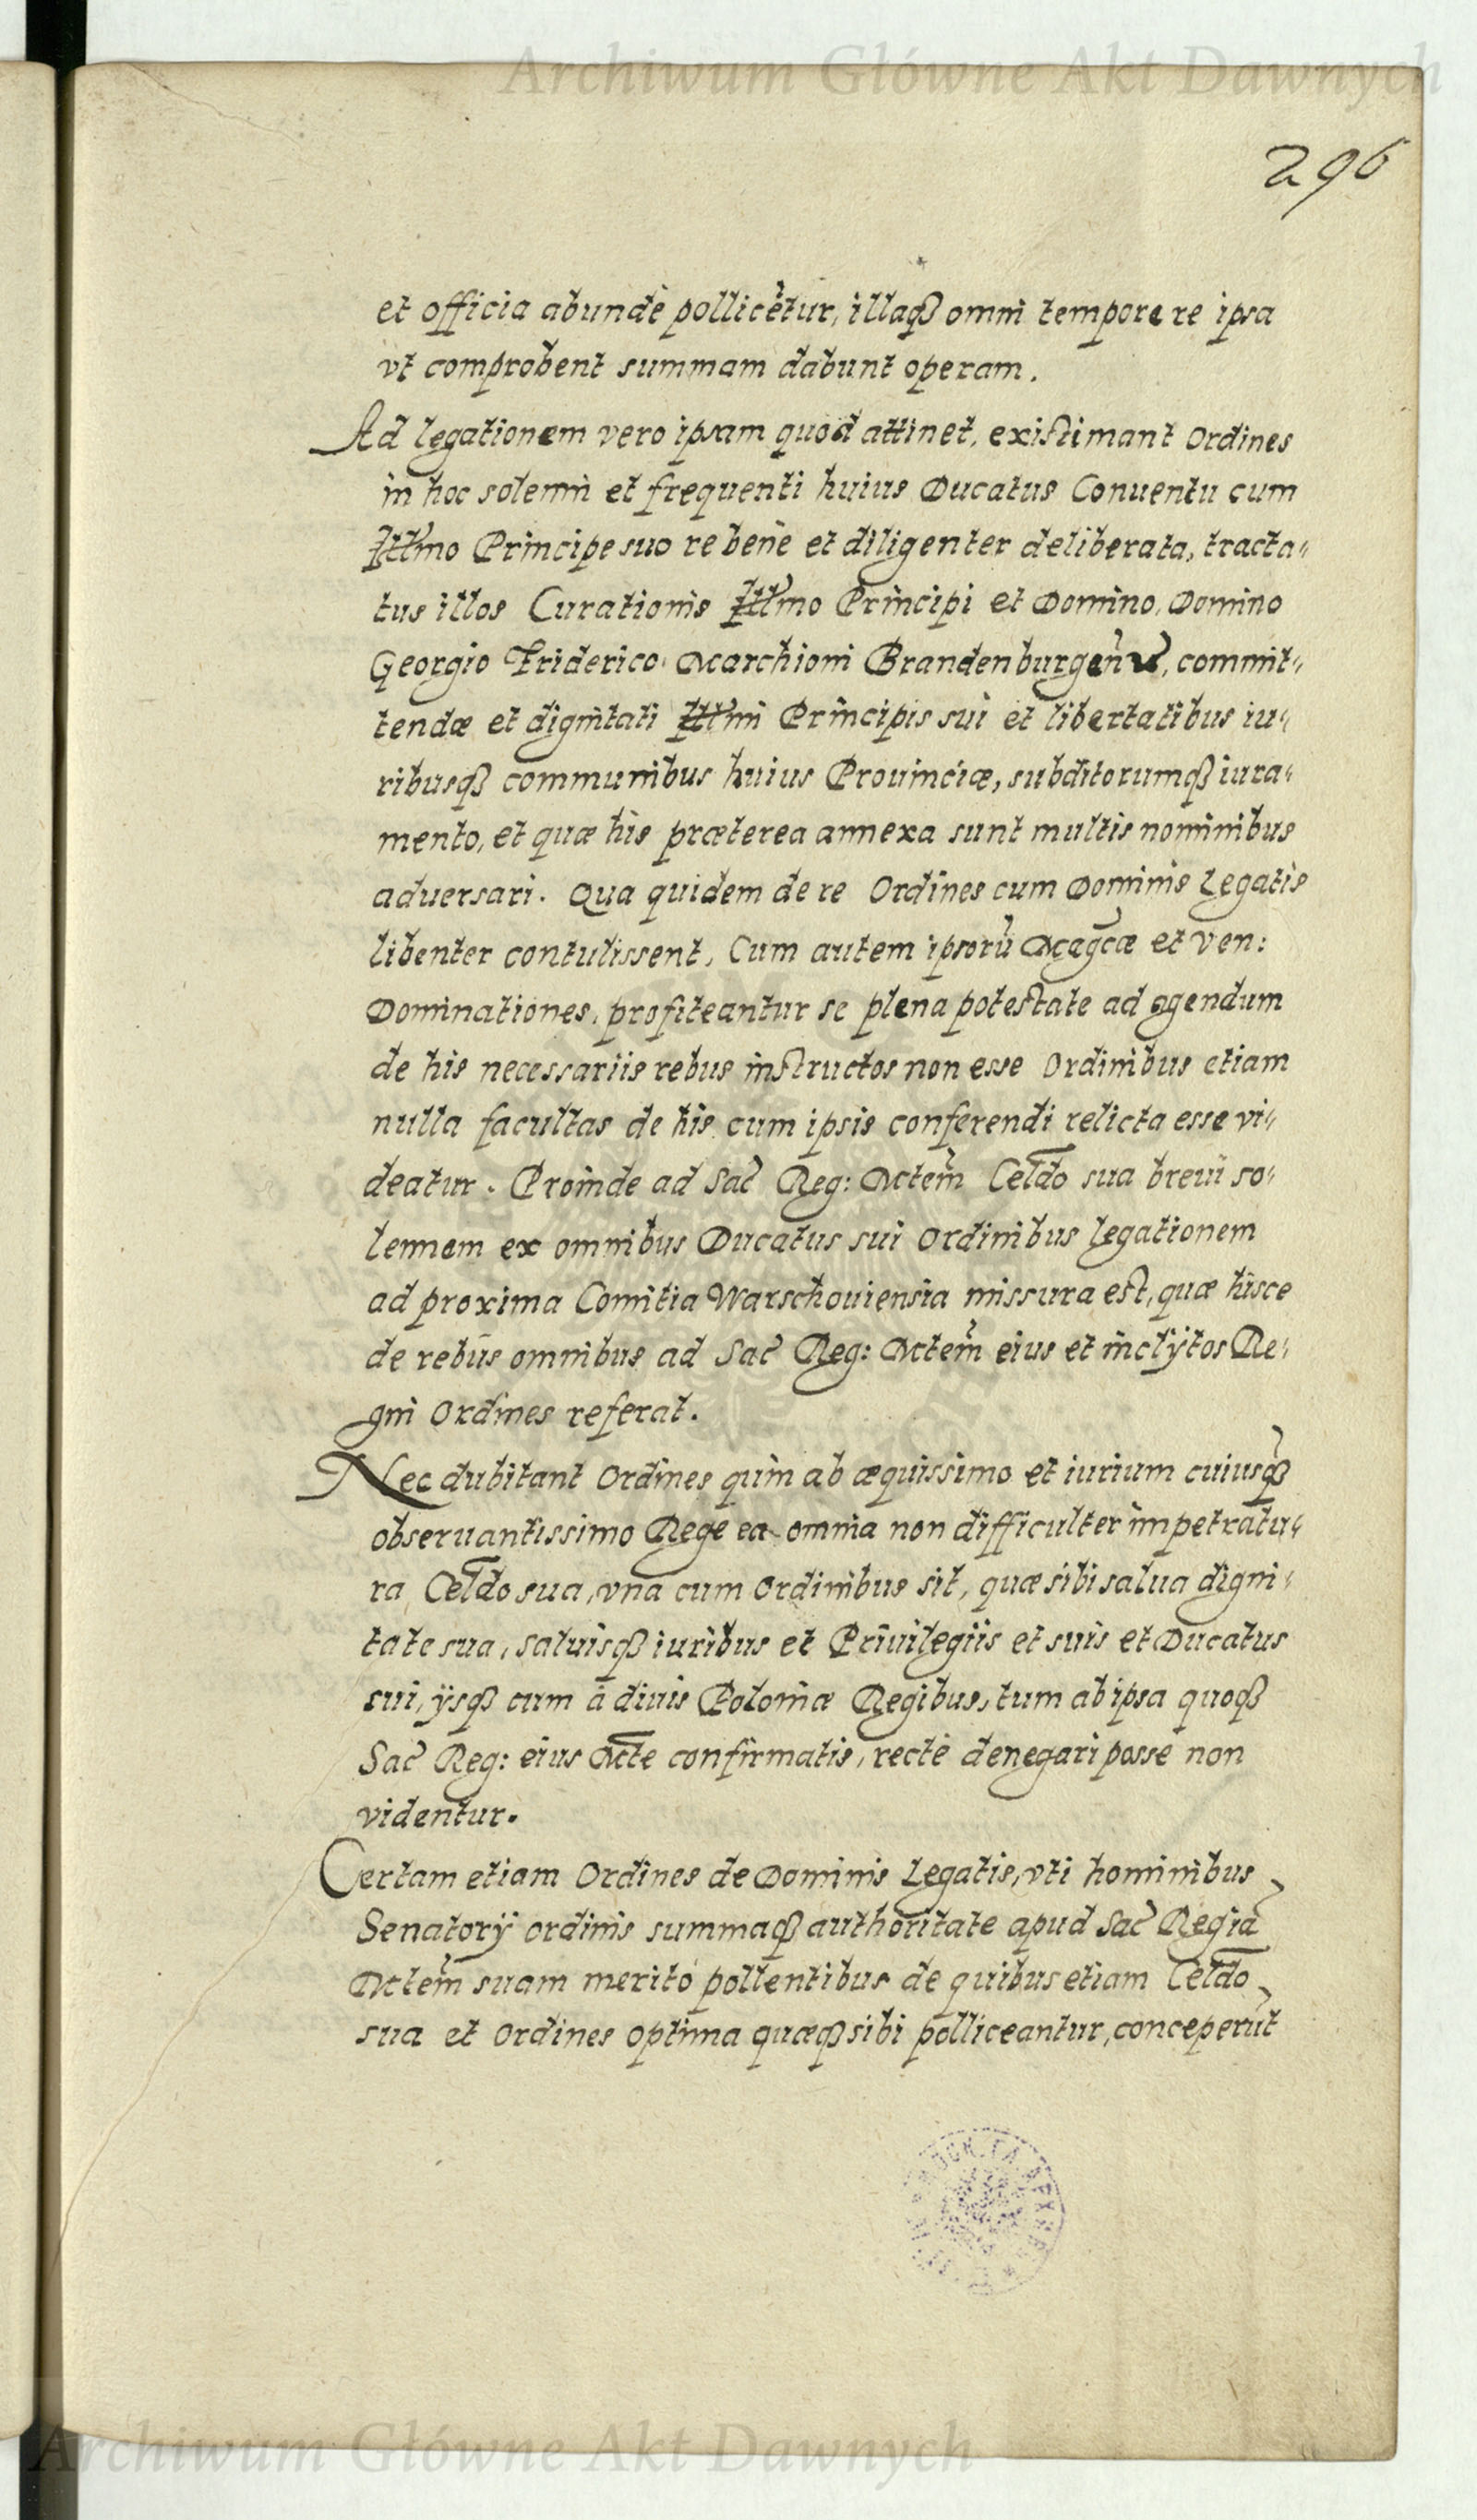 Archiwum Główne Akt Dawnych
296
et officia abundè pollicetur, illaqȝ omni tempore re ipsa
vt comprobent summam dabunt operam.
Ad legationem vero ipsam quod attinet, existimant Ordines
in hoc solenni et frequenti huius Ducatus Conuentu cum
Illmo Principe suo re bene et diligenter deliberata, tracta-
tus illos Curationis Illmo Principi et Domino, Domino
Georgio Friderico Marchioni Brandenburgen, commit-
tendæ et dignitati Illmi Principis sui et libertatibus iu-
ribusqȝ communibus huius Prouinciæ, subditorumqȝ iura-
mento, et quæ his præterea annexa sunt multis nominibus
aduersari. Qua quidem de re Ordines cum Dominis Legatis
libenter contulissent, Cum autem ipsorū Magcæ et Ven:
Dominationes, profiteantur se plena potestate ad agendum
de his necessariis rebus instructos non esse Ordinibus etiam
nulla facultas de his cum ipsis conferendi relicta esse vi-
deatur. Proinde ad Sac Reg: Mtem Celdo sua breui so-
lennem ex omnibus Ducatus sui Ordinibus legationem
ad proxima Comitia Warschouiensia missura est, quæ hisce
de rebus omnibus ad Sac Reg: Mtem eius et inclÿtos Re-
gni Ordines referat.
Nec dubitant Ordines quin ab æquissimo et iurium cuiusqȝ
obseruantissimo Rege ea omnia non difficulter impetratu-
ra Celdo sua, vna cum Ordinibus sit, quæ sibi salua digni-
tate sua, saluisqȝ iuribus et Priuilegiis et suis et Ducatus
sui, ÿsqȝ cum à diuis Poloniæ Regibus, tum ab ipsa quoqȝ
Sac Reg: eius Mte confirmatis, rectè denegari posse non
videntur.
Certam etiam Ordines de Dominis Legatis, vti hominibus
Senatorÿ ordinis summaqȝ authoritate apud Sac Regiā
Mtem suam meritò pollentibus de quibus etiam Celdo
sua et Ordines optima quæqȝ sibi polliceantur, conceperūt
Archiwum Główne Akt Dawnych